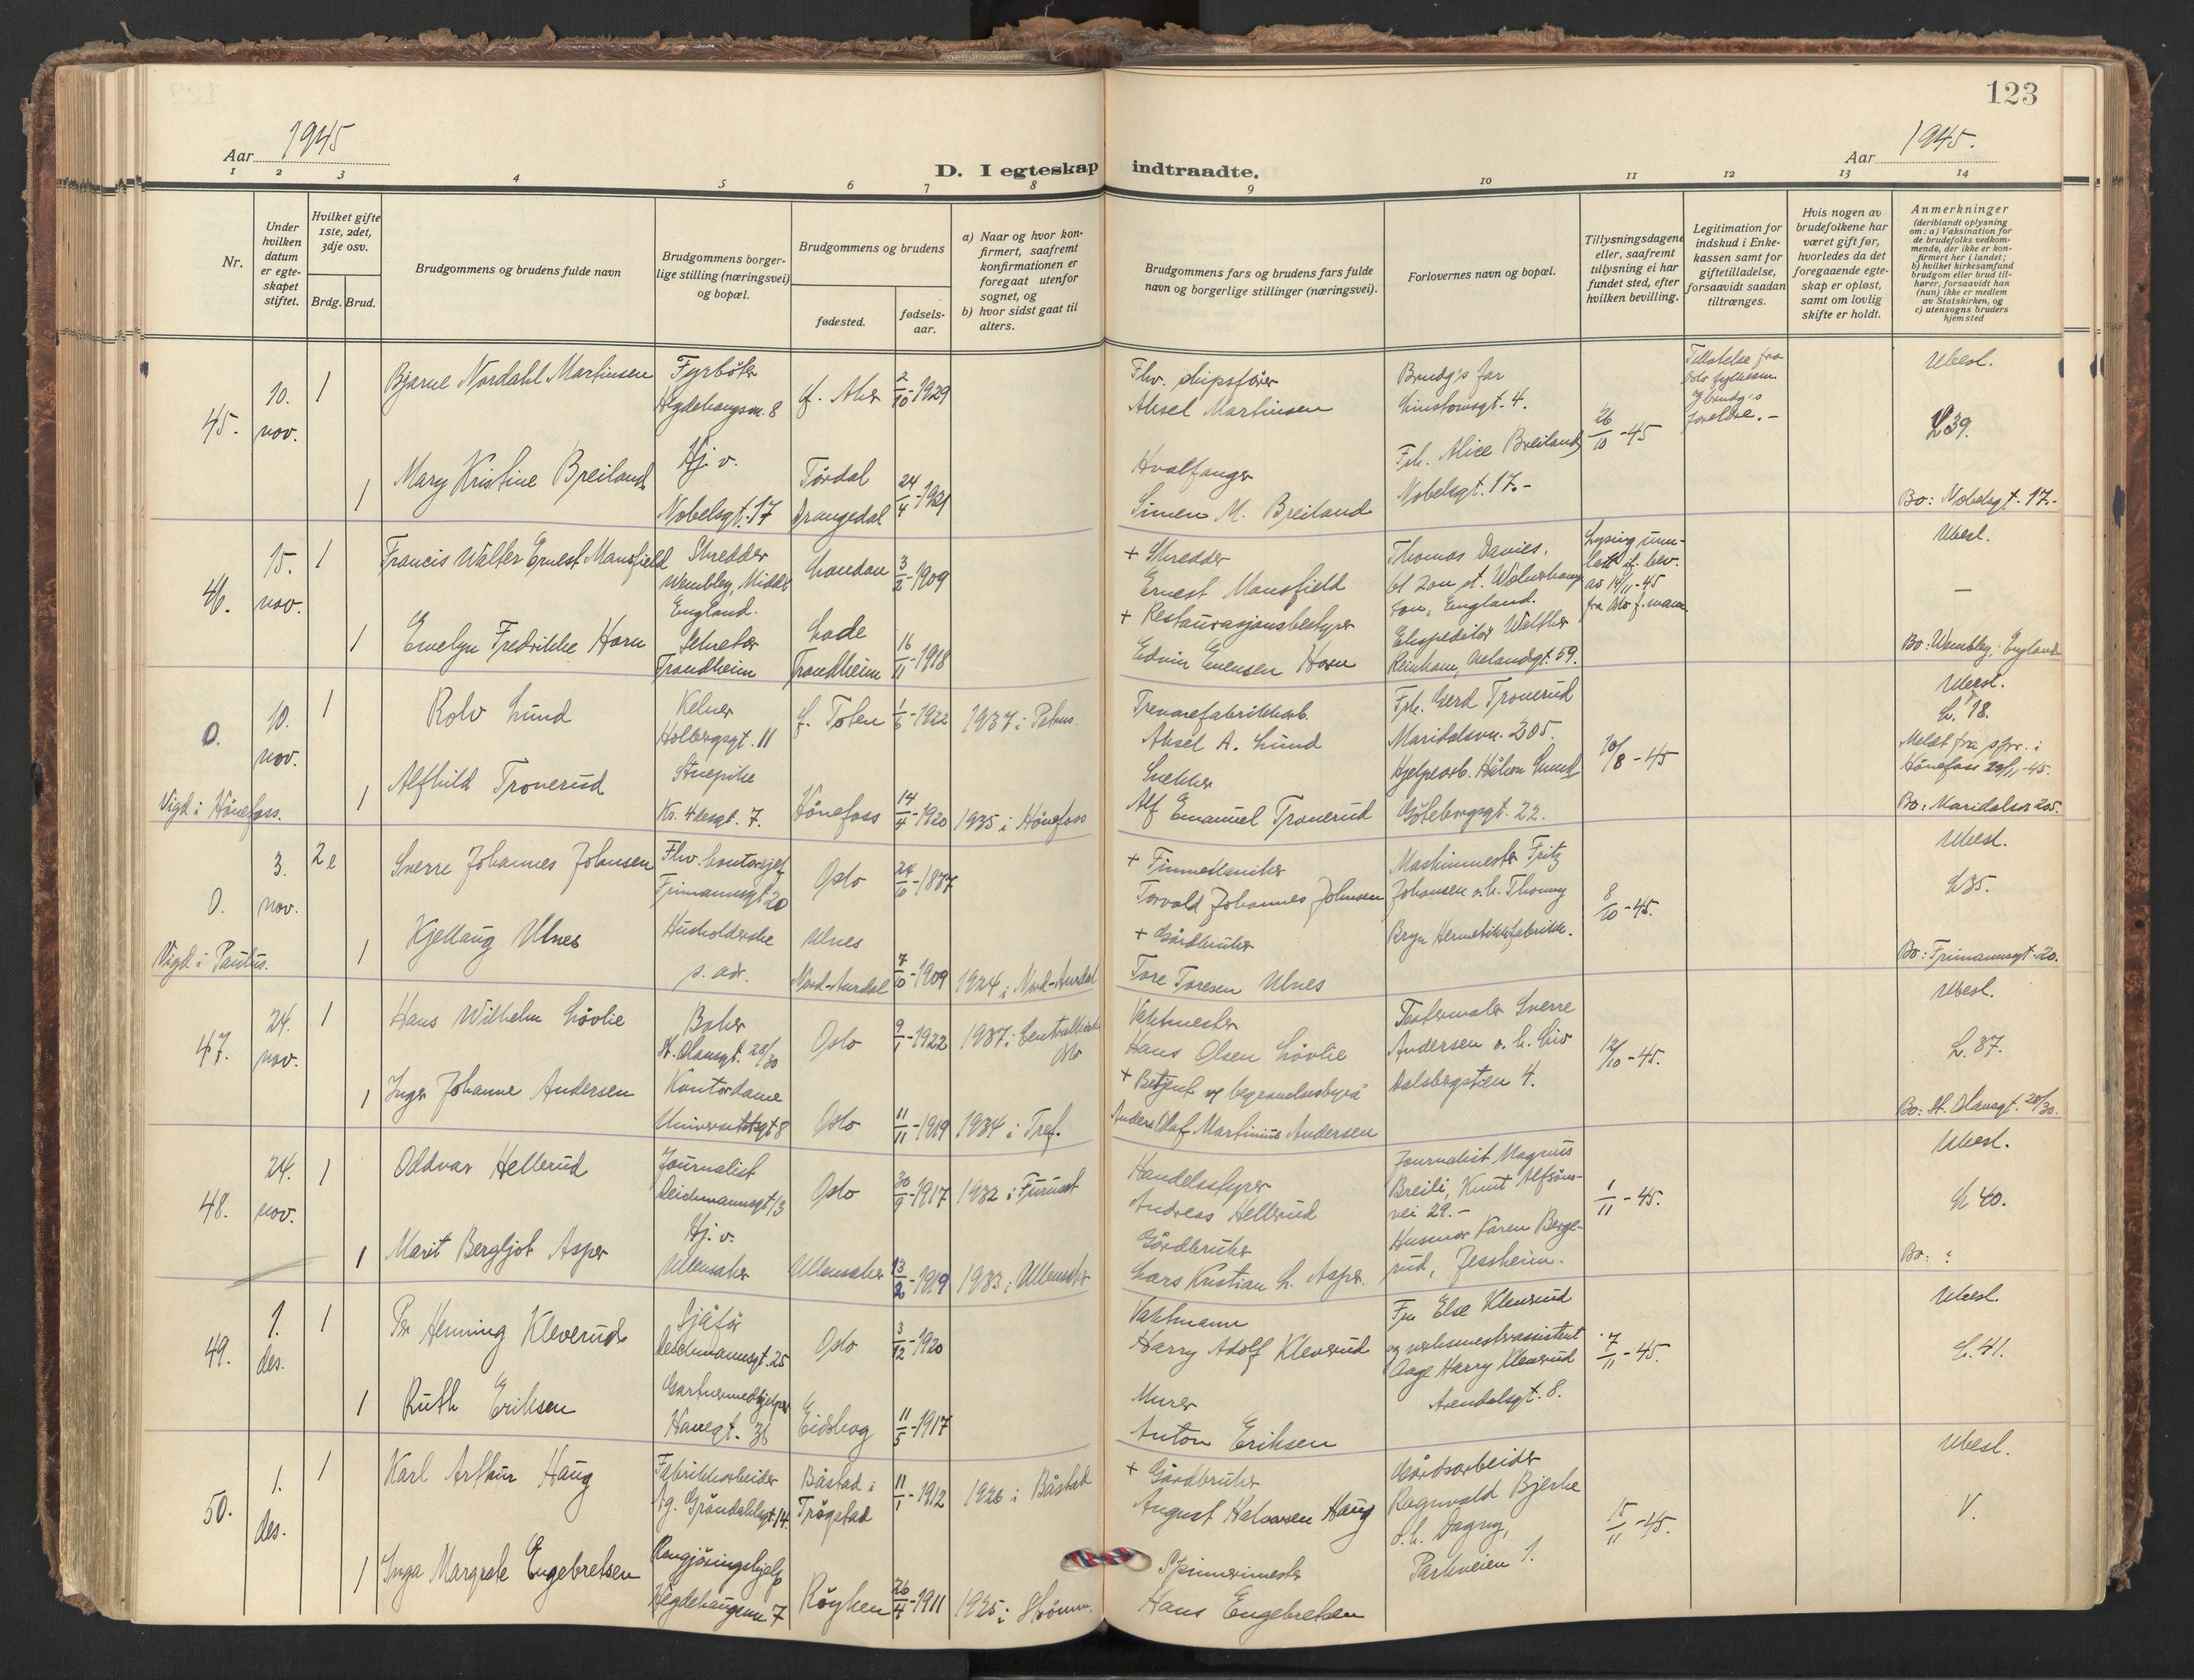 123
Aar 1945
Aar 1945.
D. I egteskap indtraadte.
1 2 3 4 5 6 7 8 9 10 11 12 13 14
Nr.
Under hvilken datum er egteskapet stiftet.
Hvilket gifte 1ste, 2det, 3dje osv.
Brdg. Brud.
Brudgommens og brudens fulde navn
Brudgommens borgerlige stilling (næringsvei) og bopæl.
Brudgommens og brudens
fødested.
fødselsaar.
a) Naar og hvor konfirmert, saafremt konfirmationen er foregaat utenfor sognet, og
b) hvor sidst gaat til alters.
Brudgommens fars og brudens fars fulde navn og borgerlige stillinger (næringsvei).
Forlovernes navn og bopæl.
Tillysningsdagene eller, saafremt tillysning ei har fundet sted, efter hvilken bevilling.
Legitimation for indskud i Enkekassen samt for giftetilladelse, forsaavidt saadan tiltrænges.
Hvis nogen av brudefolkene har været gift før, hvorledes da det foregaaende egteskap er opløst, samt om lovlig skifte er holdt.
Anmerkninger
(deriblandt oplysning om: a) Vaksination for de brudefolks vedkommende, der ikke er konfirmert her i landet; b) hvilket kirkesamfund brudgom eller brud tilhører, forsaavidt han (hun) ikke er medlem av Statskirken, og c) utensogns bruders hjemsted
45.
10. nov.
1
Bjarne Nordahl Martinsen
Fyrbøter
Hegdehaugsvn. 8
f. Aker
2/10-1929
Fhv. skipsfører
Aksel Martinsen
Brudg's far
Linstowsgt. 4.
26/10-45
Tillatelse fra
Oslo fylkesm.
og brudg's
foreldre.-
Ubesl.
L 39.
1
Mary Kristine Breiland
Hj. v.
Nobelsgt. 17
Tørdal
Drangedal
24/4-1921
Hvalfanger
Simen M. Breiland
Frk. Alice Breiland
Nobelsgt. 17.-
Bo: Nobelsgt. 17.-
46.
15. nov.
1
Francis Walter Ernest Mansfield
Skredder
Wembley, Middx
England.
London
3/2-1909
+ Skredder
Ernest Mansfield
Thomas Davies.
England.
av 14/11-45
Ubesl.
1
Evelyn Fredrikke Horn
Sekretær
Trondheim
Lade
Trondheim
16/11-1918
+ Restaurasjonsbestyrer
Edvin Evensen Horn
Ekspeditør Walther
Reinham, Uelandsgt. 59.
Bo: Wembley, England
0.
10. nov.
1
Rolv Lund
Kelner
Holbergsgt. 11
f. Toten
1/6-1922
1937 i Petrus.
Trevarefabrikkarb.
Aksel A. Lund
Frk. Gerd Tronerud
Maridalsvn. 205.
10/8-45
Ubesl.
L. 18.
Meldt fra spr. i
Hønefoss 23/11-45.
Vigd i Hønefoss.
1
Alfhild Tronerud
Stuepike
Kr. 4desgt. 7.
Hønefoss
14/4-1920
1935 i Hønefoss
Snekker
Alf Emanuel Tronerud
Hjelpearb. Håkon Lund
Gøteborggt. 22.
Bo: Maridalsvn 205.
0.
3. nov.
2e
Sverre Johannes Johnsen
Fhv. kontorsjef
Frimannsgt 20
Oslo
24/10-1887
+ Finmekaniker
Torvald Johannes Johnsen
Maskinmester Fritz
Johansen o.h. Thonny
8/10-45.
Ubesl.
L 35.
Vigd i Paulus.
1
Kjellaug Ulnes
Husholderske
s. adr.
Ulnes
Nord-Aurdal
7/10-1909
1924 i Nord-Aurdal
+ Gårdbruker
Tore Toresen Ulnes
Bryn Hermetikkfabrikk.
Bo: Frimannsgt 20.
47.
24. nov.
1
Hans Wilhelm Løvlie
Baker
St. Olavsgt. 28/30
Oslo
9/1-1922
1937 i Centralkirk
Oslo
Vaktmester
Hans Olsen Løvlie
Teatermaler Sverre
Andersen o. h. Liv
12/10-45.
Ubesl.
L. 37.
1
Inger Johanne Andersen
Kontordame
Universitetsgt 8
Oslo
11/11-1919
1934 i Tref.
+ Betjent v/ begravelsesbyrå
Anders Olaf Martinius Andersen
Dalsbergstien 4.
Bo: St. Olavsgt. 28/30.
48.
24. nov.
1
Oddvar Hellerud
Journalist
Deichmannsgt 13
Oslo
30/9-1917
1932 i Furuset
Handelsstyrer
Andreas Hellerud
Journalist Magnus
Breili, Knut Alfsøns-
vei 29.-
1/11-45.
Ubesl.
L 40.
1
Marit Bergljot Asper
Hj. v.
Ullensaker
Ullensaker
13/2-1919
1933 i Ullensaker
Gårdbruker
Lars Kristian L. Asper.
Husmor Karen Berge-
rud, Jessheim.
Bo:
49.
1. des.
1
Per Henning Kleverud
Sjåfør
Deichmannsgt. 25
Oslo
3/12-1920
Vaktmann
Harry Adolf Kleverud
Fru Else Kleverud
og verksmesterassistent
Aage Harry Kleverud
Arendalsgt. 8.
7/11-45.
Ubesl.
L. 41.
1
Ruth Eriksen
Gartnermedhjelper
Eidskog
11/5-1917
Murer
Anton Eriksen
50.
1. des.
1
Karl Arthur Haug
Fabrikkarbeider
Ag. Grøndahlsgt 14.
Båstad i
Trøgstad
11/1-1912
1926 i Båstad
+ Gårdbruker
August Halvorsen Haug
Gårdsarbeider
Ragnvald Bjerke
o.h. Dagny,
Parkveien 1.
15/11-45.
Ubesl.
V.
1
Inga Margrete Engebretsen
Rengjøringshjelp
Hegdehaugsvn 7
Røyken
26/4-1911
Spinnerimester
Hans Engebretsen